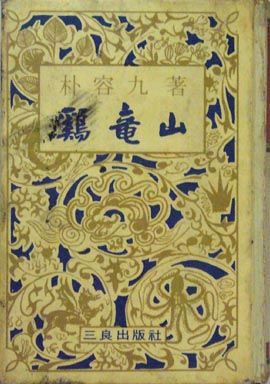 朴容九 著
鷄竜山
三良出版社